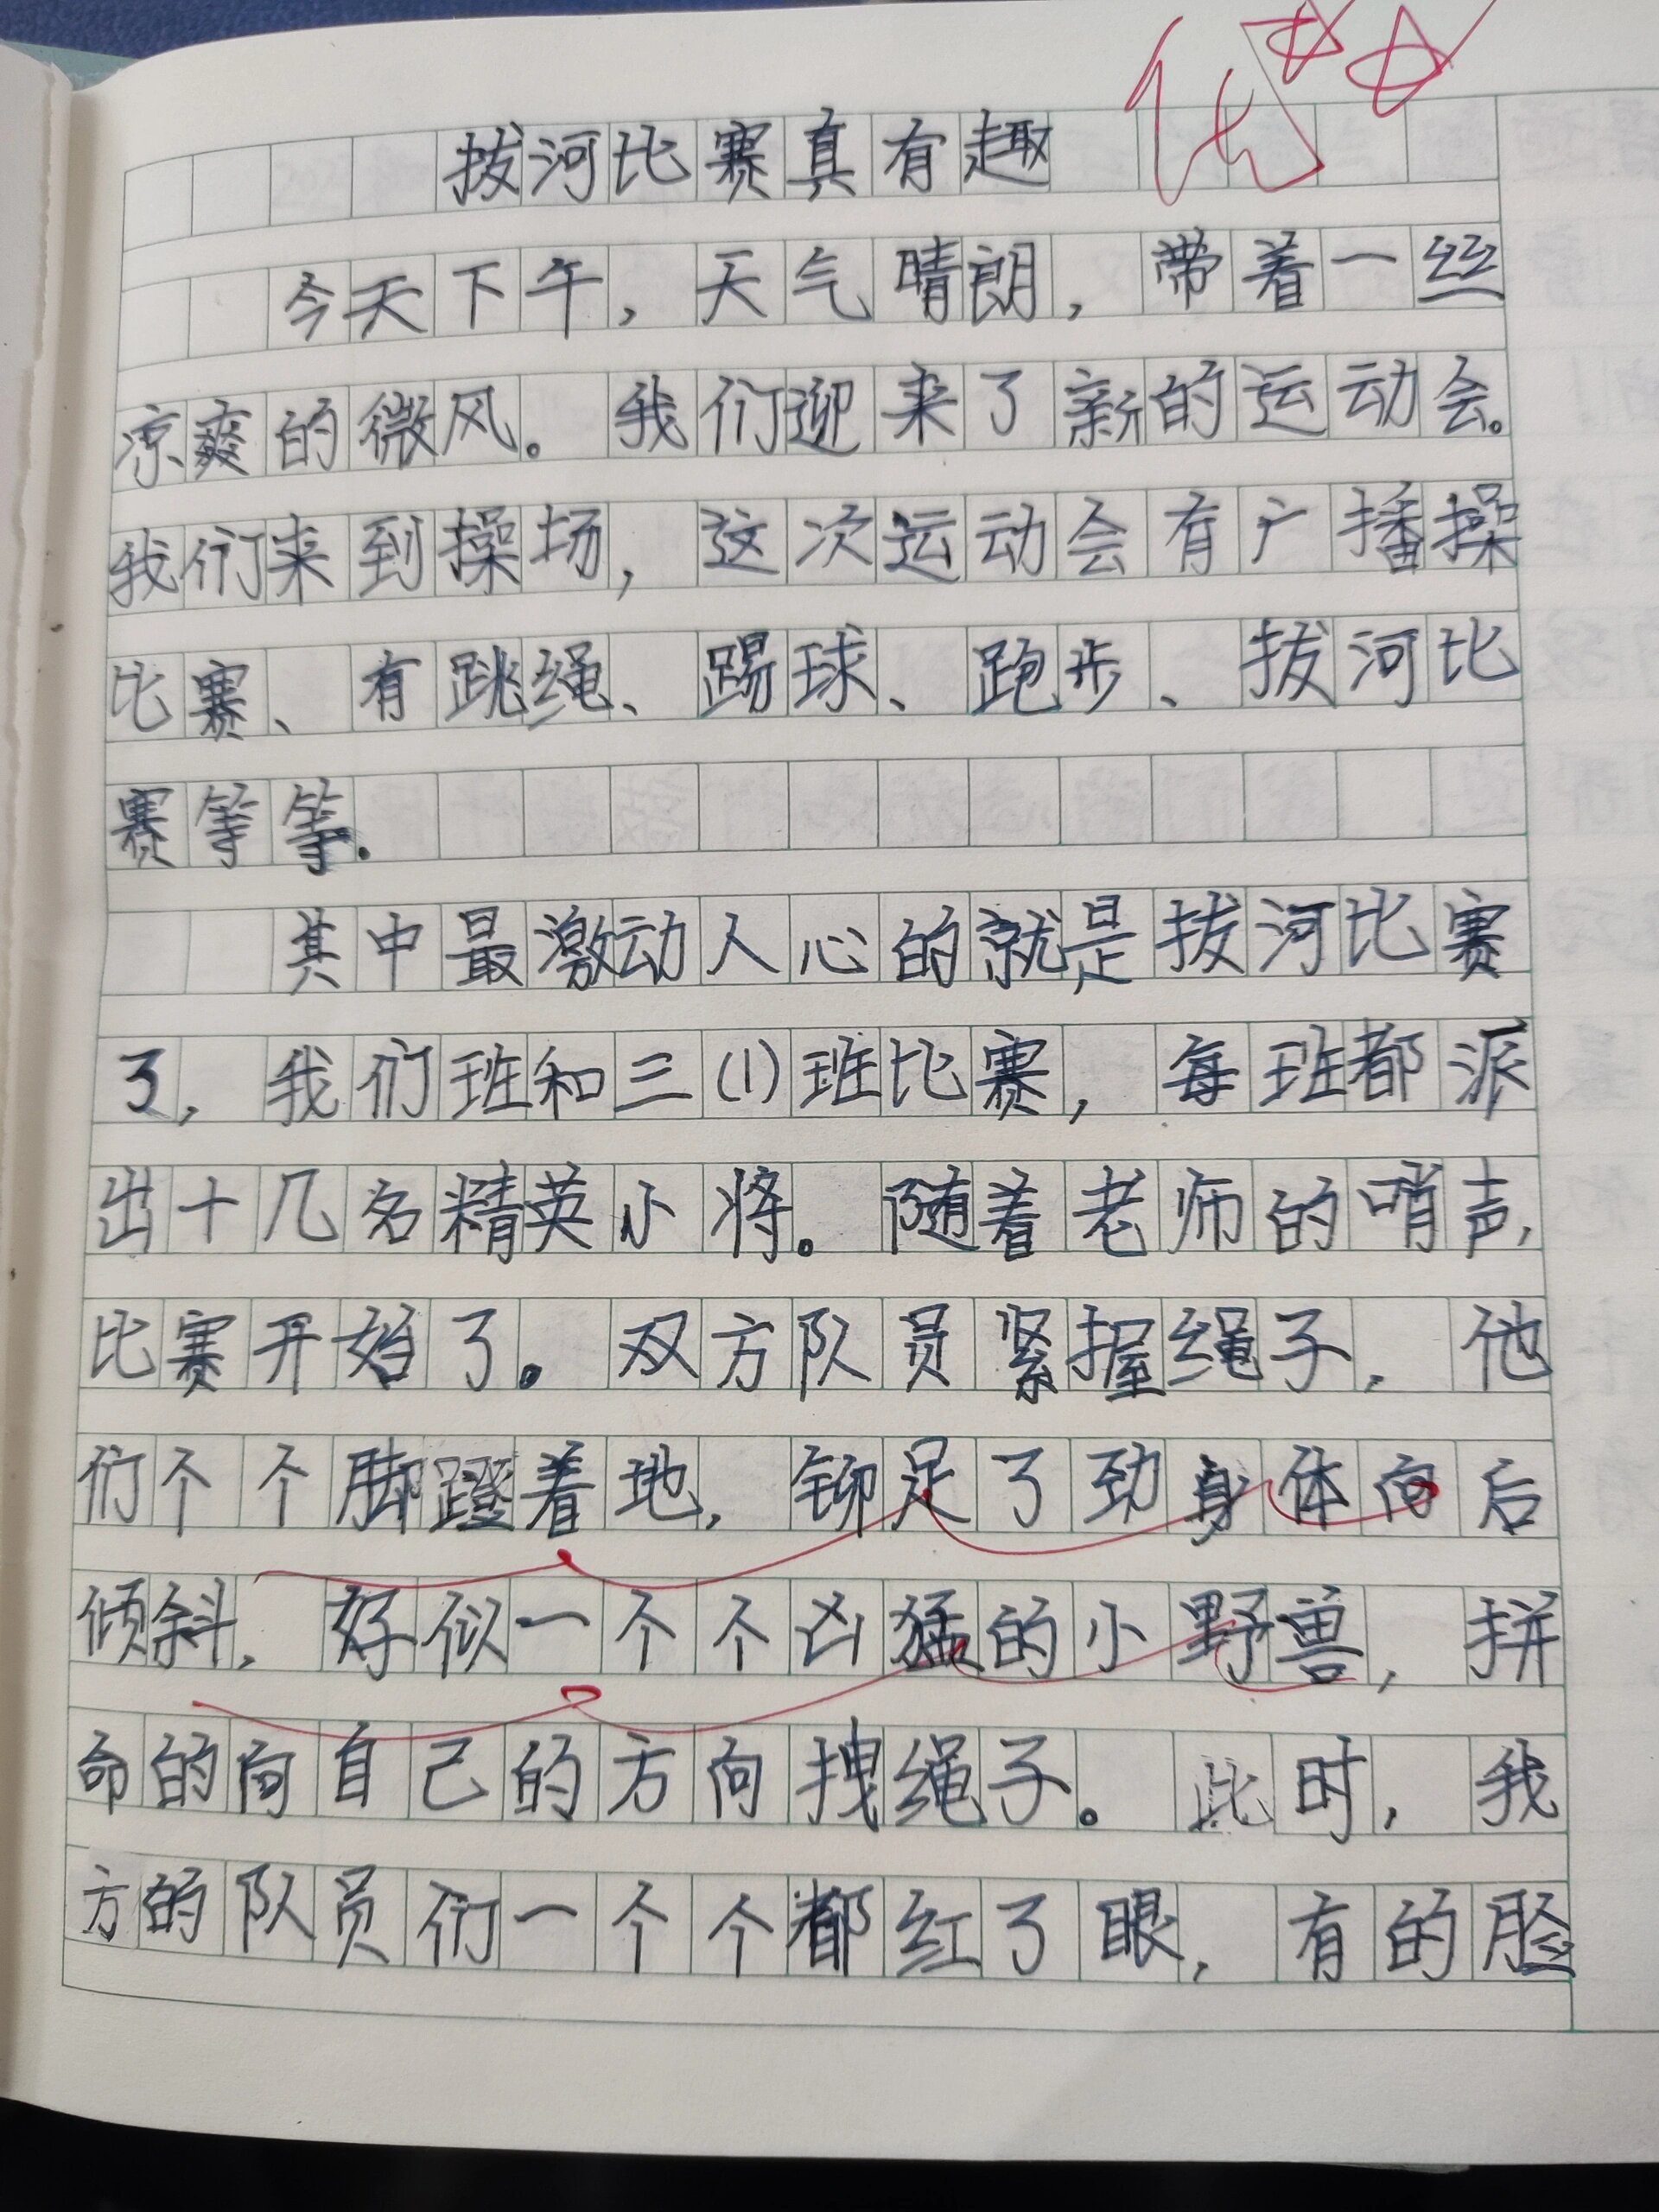 拔河比赛真有趣
优
今天下午，天气晴朗，带着一丝
凉爽的微风。我们迎来了新的运动会。
我们来到操场，这次运动会有广播操
比赛、有跳绳、踢球、跑步、拔河比
赛等等。
其中最激动人心的就是拔河比赛
了，我们班和三(1)班比赛，每班都派
出十几名精英小将。随着老师的哨声，
比赛开始了。双方队员紧握绳子，他
们个个脚蹬着地，铆足了劲身体向后
倾斜，好似一个个凶猛的小野兽，拼
命的向自己的方向拽绳子。此时，我
方的队员们一个个都红了眼，有的脸